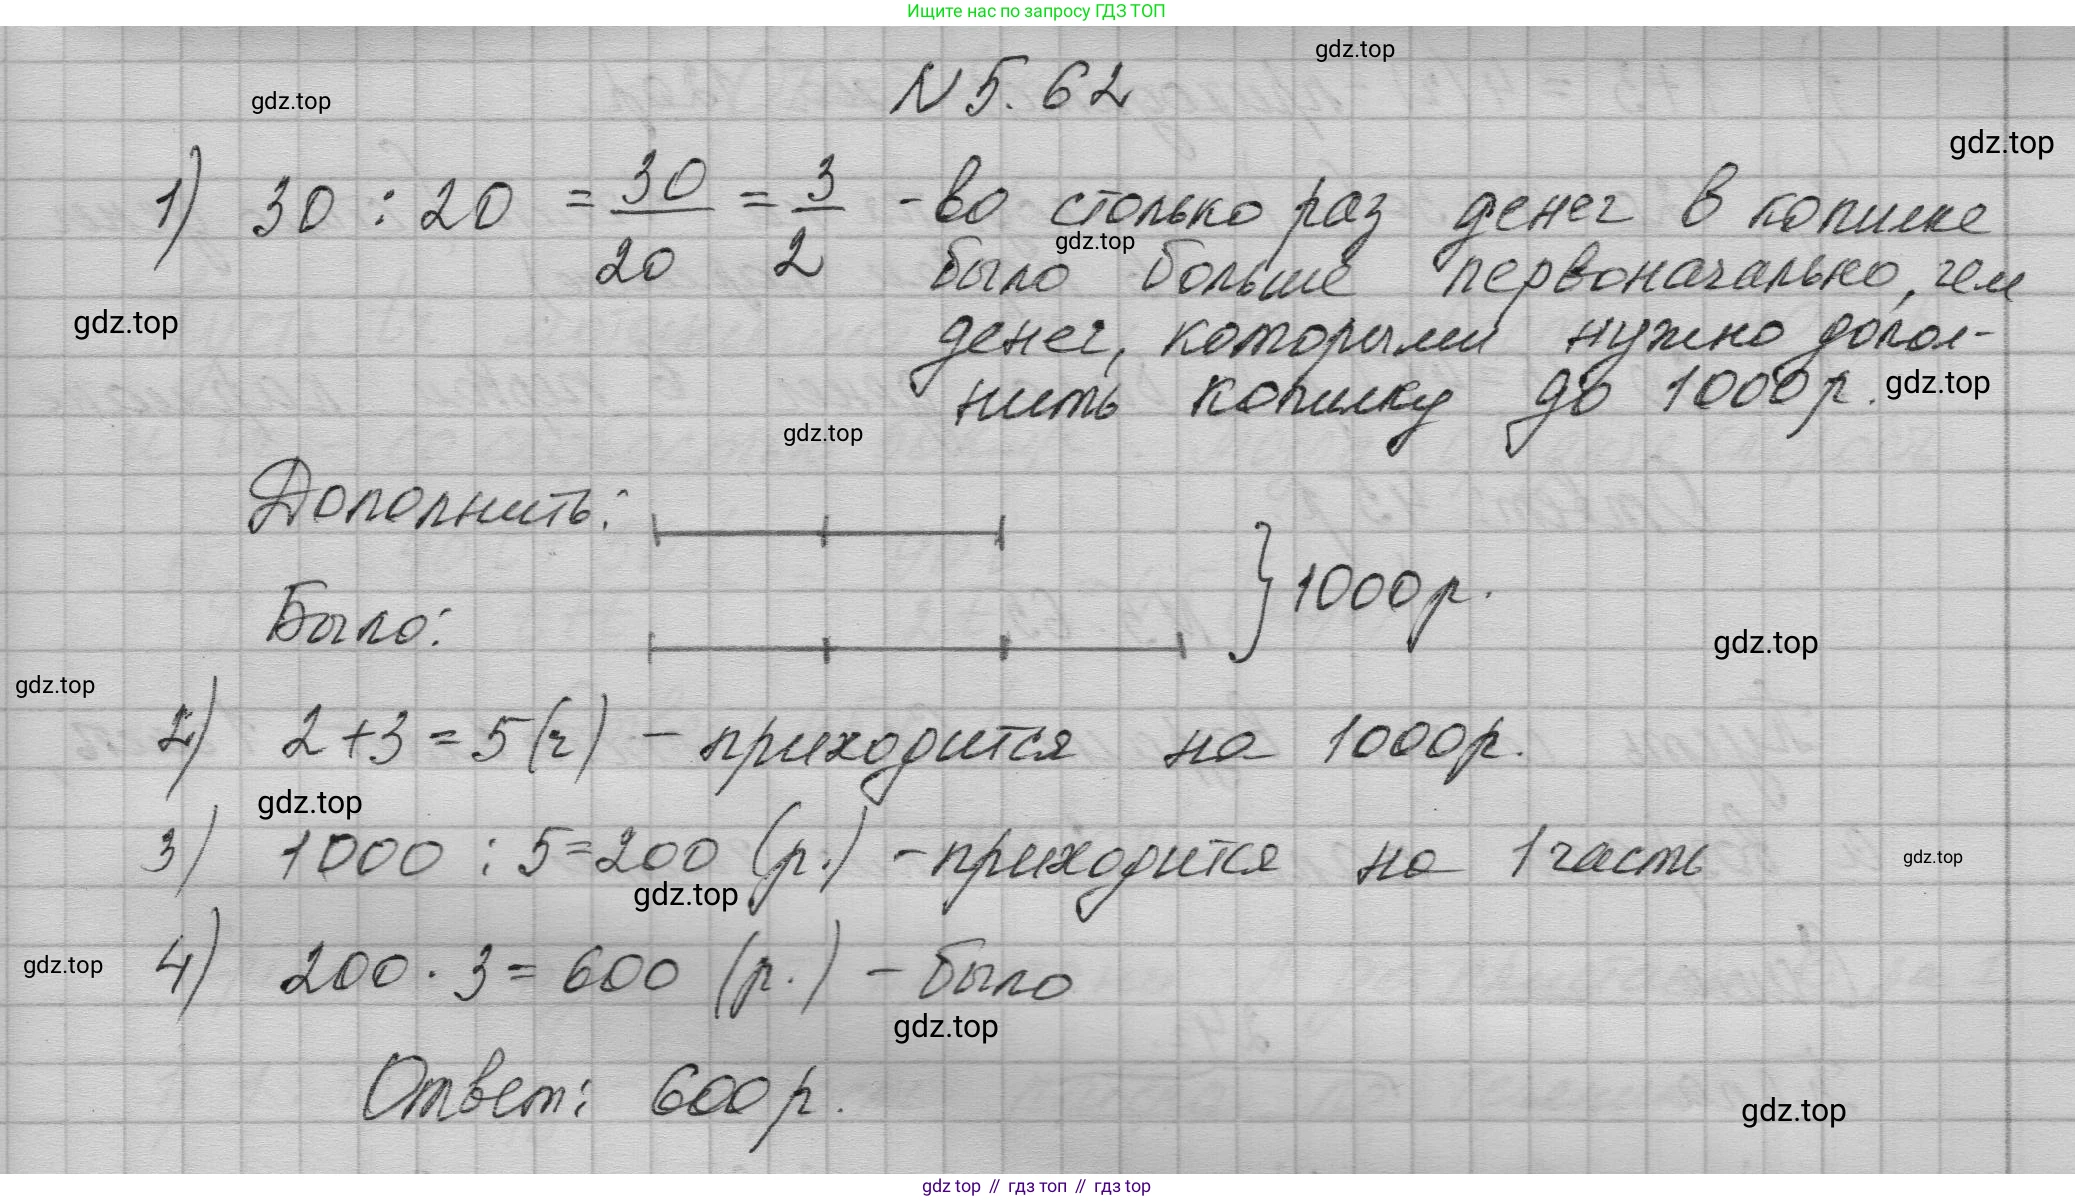 Ищите нас по запросу ГДЗ ТОП
gdz.top
N 5.62
gdz.top
gdz.top
1) 30 : 20 = 30/20 = 3/2 - во столько раз денег в копилке
gdz.top
было больше первоначально, чем
gdz.top
денег, которыми нужно допол-
нить копилку до 1000 р.
gdz.top
gdz.top
Дополнить:
} 1000 р.
Было:
gdz.top
gdz.top
2) 2 + 3 = 5 (ч) - приходится на 1000 р.
gdz.top
3) 1000 : 5 = 200 (р.) - приходится на 1 часть
gdz.top
gdz.top
4) 200 · 3 = 600 (р.) - было
gdz.top
gdz.top
Ответ: 600 р.
gdz.top
gdz top // гдз топ // гдз top